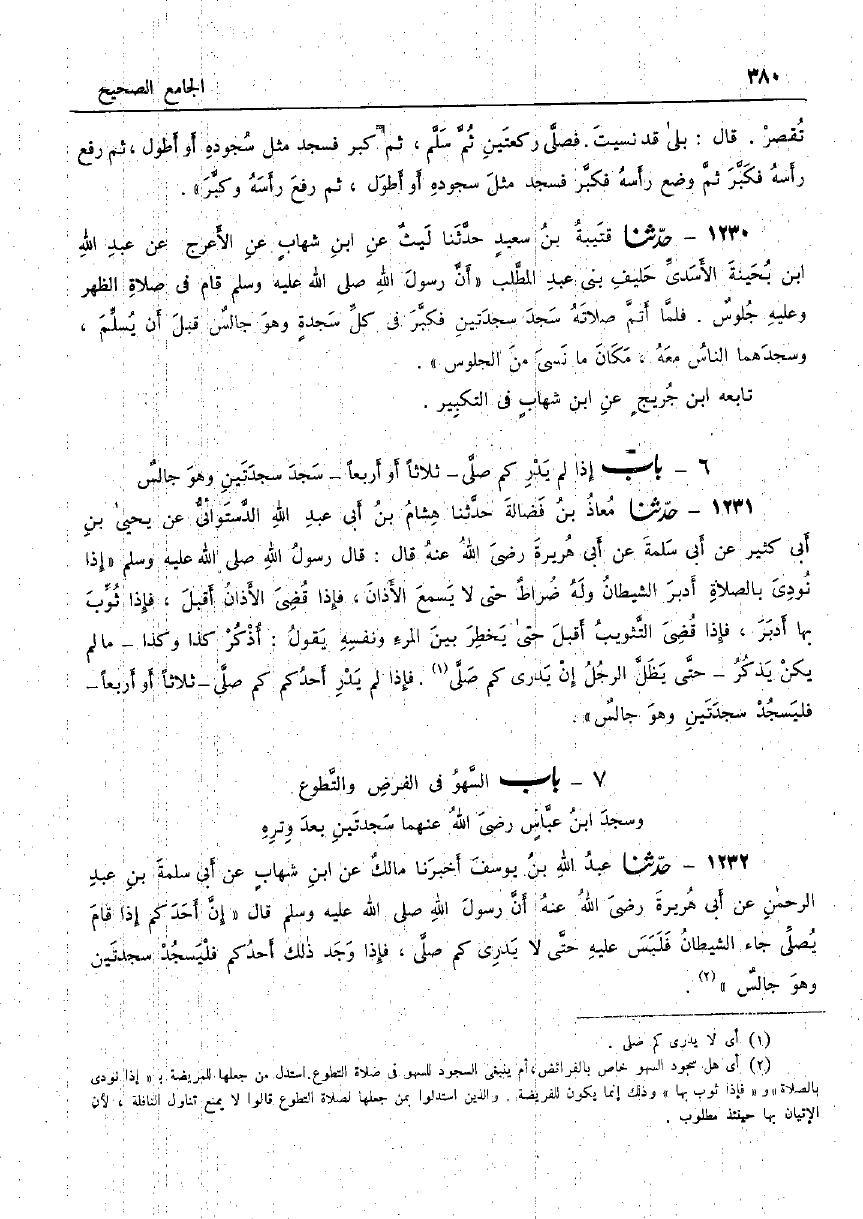 ٣٨٠
الجامع الصحيح
تُقصرْ . قال : بلىٰ قد نسيتَ . فصلَّى ركعتَينِ ثُمَّ سَلَّم ، ثم كبر فسجد مثل سُجودهِ أو أطول ، ثم رفع
رأسهُ فكَبَّرَ ثمَّ وضع رأسهُ فكبَّر فسجد مثلَ سجودهِ أو أطوَل ، ثم رفعَ رأسَهُ وكبَّرَ» .
١٢٣٠ – حدّثنا قتَيبةُ بنُ سعيدٍ حدَّثَنا لَيثٌ عنِ ابنِ شهابٍ عنِ الأعرجِ عن عبدِ اللهِ
ابن بُحَينةَ الأسَدىِّ حَليفِ بنى عبدِ المطَّلب «أنَّ رسولَ اللهِ صلى الله عليه وسلم قام فى صلاةِ الظهر
وعليهِ جُلوسٌ . فلمَّا أتمَّ صلاتَهُ سَجدَ سجدَتينِ فكبَّرَ فى كلِّ سَجدةٍ وهوَ جالسٌ قبلَ أن يُسلِّمَ ،
وسجدَهما الناسُ معَهُ ، مَكانَ ما نَسىَ منَ الجلوس» .
تابعه ابن جُريجٍ عنِ ابنِ شهابٍ فى التكبِيرِ .
٦ – باب إذا لم يَدْرِ كم صلَّى – ثلاثاً أو أربعاً – سَجدَ سجدَتَينِ وهوَ جالسٌ
١٢٣١ – حدّثنا مُعاذُ بنُ فَضالةَ حدَّثَنا هِشامُ بنُ أبى عبدِ اللهِ الدَّستَوائىُّ عن يحيىٰ بنِ
أبى كثير عن أبى سَلمةَ عن أبى هُريرةَ رضىَ اللهُ عنهُ قال : قال رسولُ اللهِ صلى الله عليه وسلم «إذا
نُودِىَ بالصلاةِ أدبرَ الشيطانُ ولَهُ ضُراطٌ حتى لا يَسمعَ الأذانَ ، فإذا قُضىَ الأذانُ أقبلَ ، فإذا ثُوِّبَ
بها أدبَرَ ، فإذا قُضىَ التَّثويبُ أقبلَ حتىٰ يَخطِرَ بينَ المرءِ ونفسِهِ يَقولُ : أُذْكُرْ كذا وكذا – مالم
يكنْ يَذكُرُ – حتَّى يَظَلَّ الرجُلُ إنْ يَدرى كم صَلَّى(١) . فإذا لم يَدْرِ أحدُكم كم صلَّى – ثلاثاً أو أربعاً –
فليَسجُدْ سجدَتَينِ وهوَ جالسٌ» .
٧ – باب السَّهوُ فى الفرضِ والتَّطوع
وسجدَ ابنُ عبَّاسٍ رضىَ اللهُ عنهما سَجدتَينِ بعدَ وِترِهِ
١٢٣٢ – حدّثنا عبدُ اللهِ بنُ يوسفَ أخبرَنا مالكٌ عن ابنِ شهابٍ عن أبى سلمةَ بنِ عبدِ
الرحمٰنِ عن أبى هُريرةَ رضىَ اللهُ عنهُ أنَّ رسولَ اللهِ صلى الله عليه وسلم قال « إنَّ أحَدَكم إذا قامَ
يُصلِّى جاء الشيطانُ فَلَبَسَ عليهِ حتَّى لا يَدرِى كم صلَّى ، فإذا وَجَد ذلك أحدُكم فلْيَسجُدْ سجدتَين
وهوَ جالسٌ »(٢) .
(١) أى لا يدرى كم صلى .
(٢) أى هل سجود السهو خاص بالفرائض ، أم ينبغى السجود للسهو فى صلاة التطوع . استدل من جعلها للفريضة بـ « إذا نودى
بالصلاة » و « فإذا ثوب بها » وذلك إنما يكون للفريضة . والذين استدلوا بمن جعلها لصلاة التطوع قالوا لا يمنع تناول النافلة ، لأن
الإتيان بها حينئذ مطلوب .